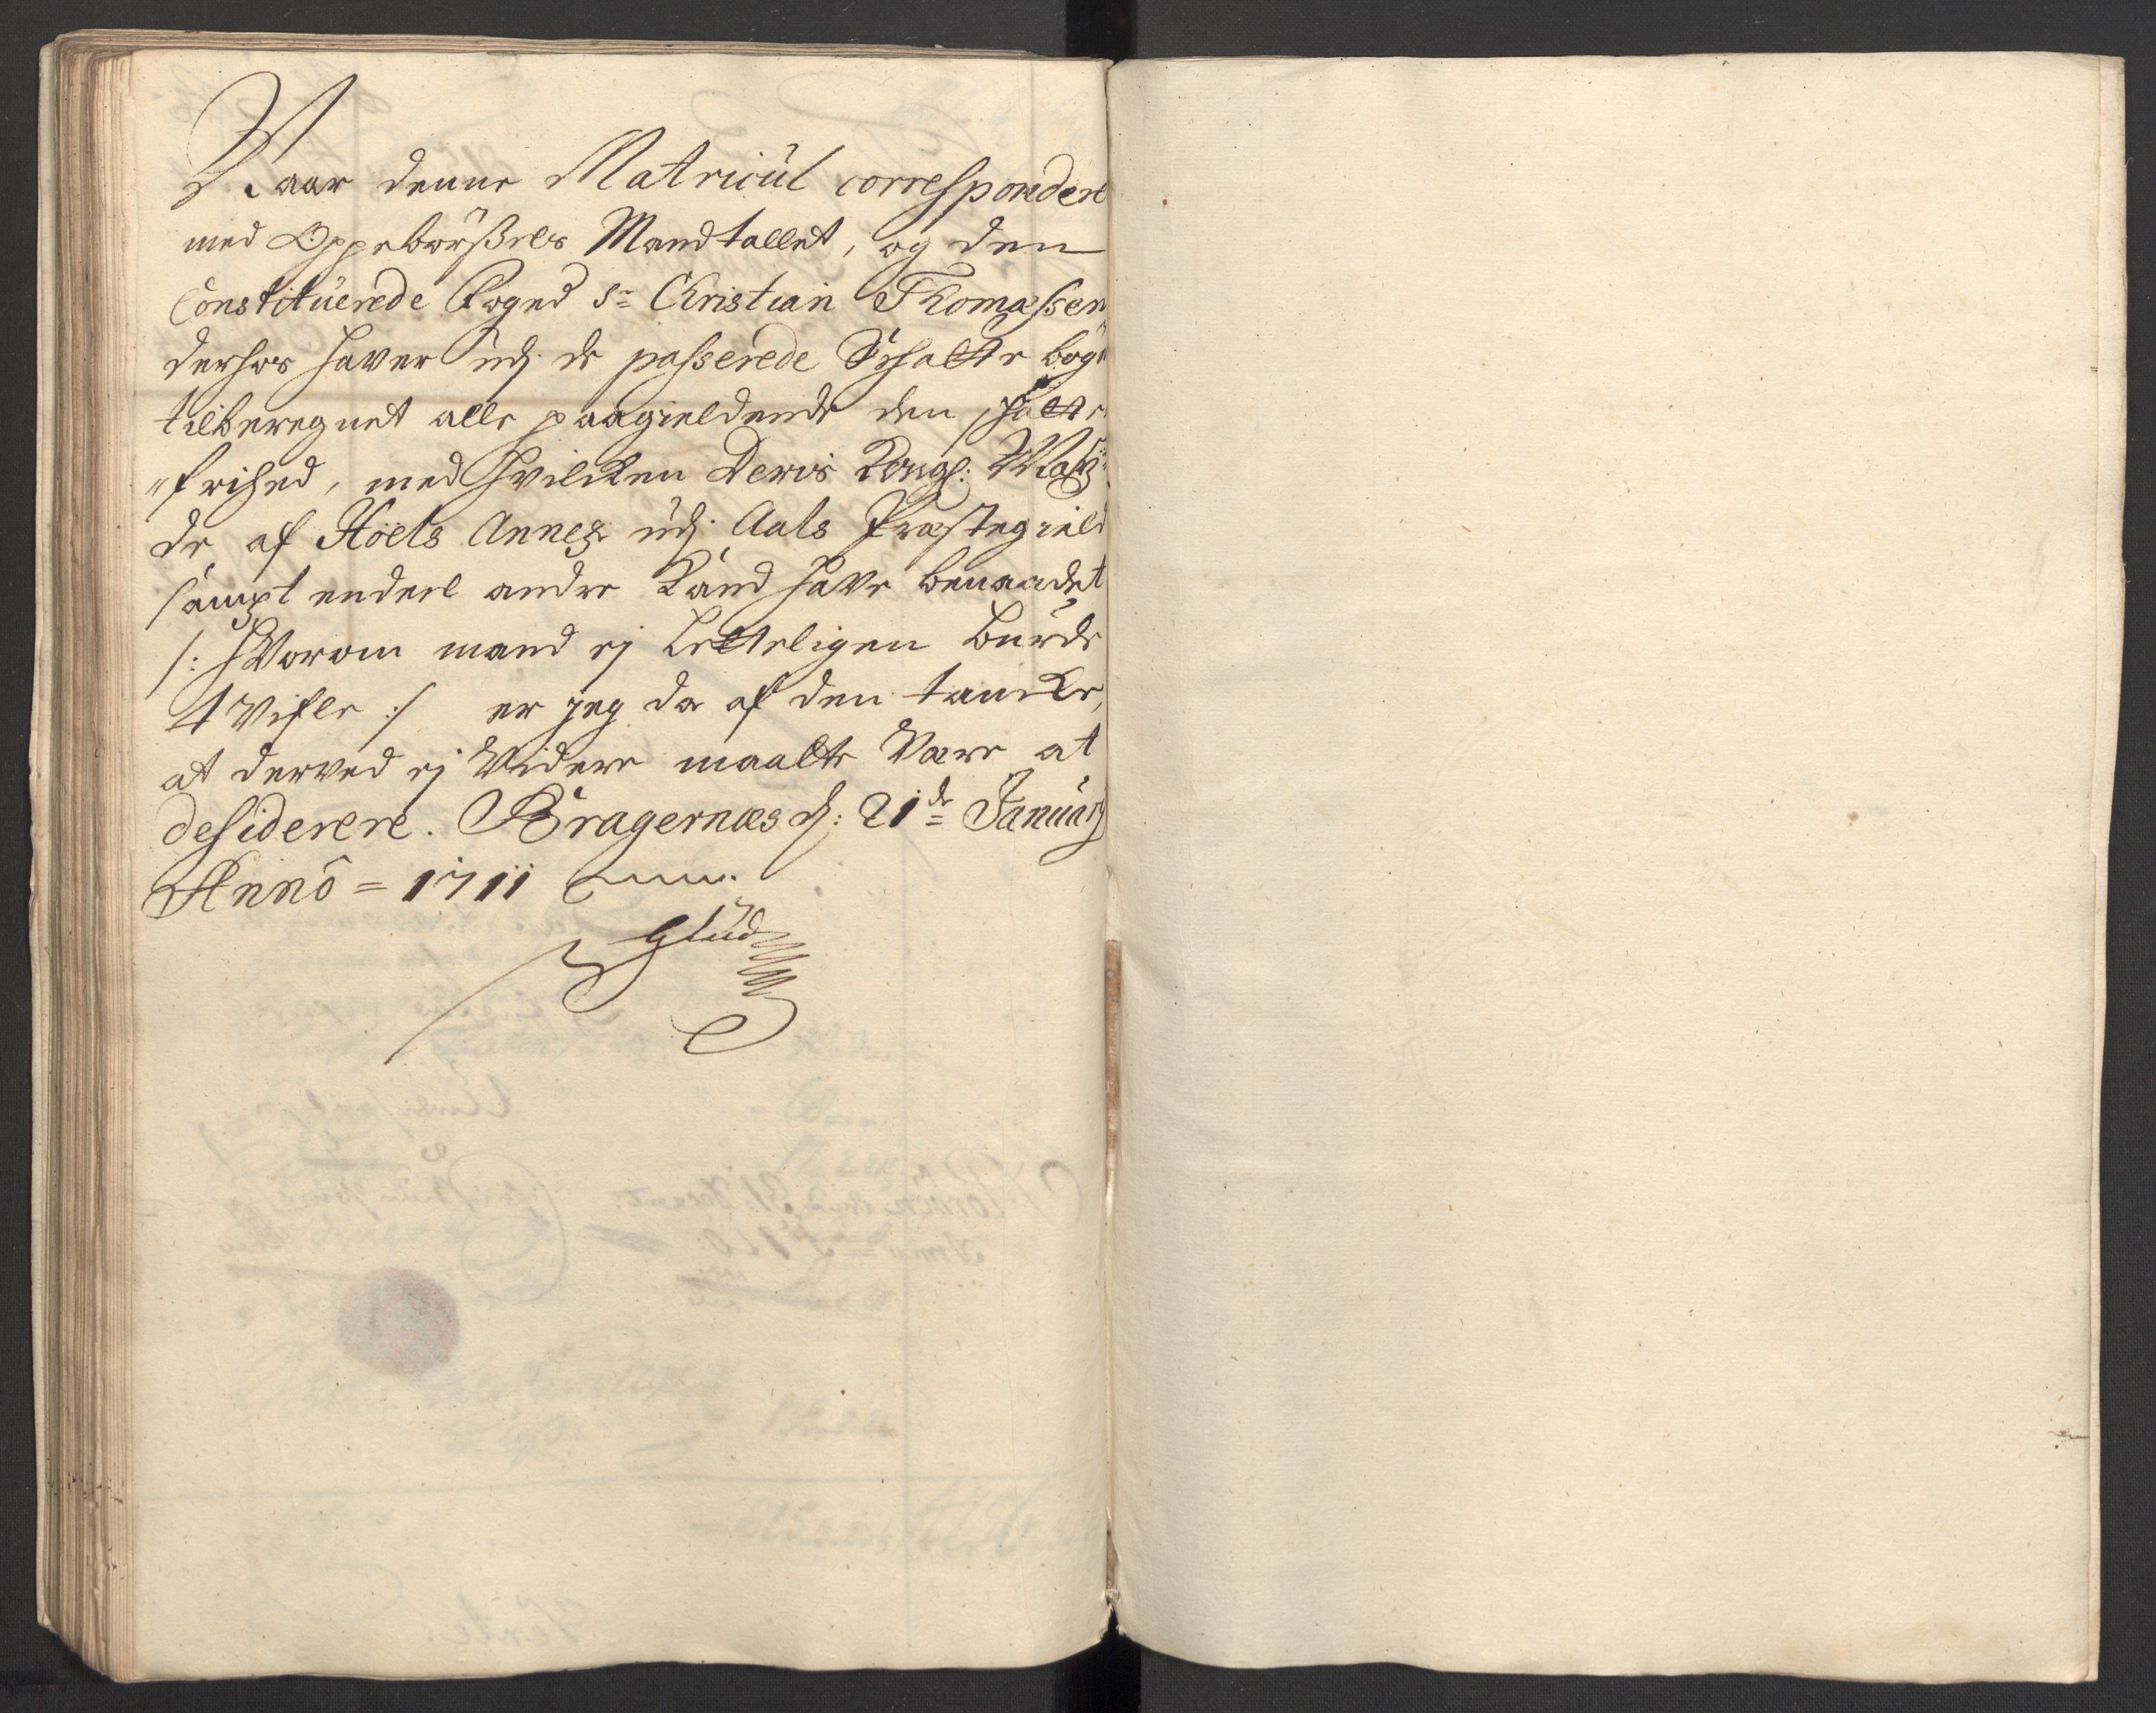 Naar denne Matricul correspondere
med Oppebørßels Mandtallet, og den
Constituerede Foged Sr Christian Thomaßen
derhos haver udj de paßerede Schatte bøger
tilberegnet alle paagieldende den schatte
"frihed, med hvilcken Deris Kongl: Maÿts
de af Hoels Annex udj Aals Præstegield
sampt endeel andre Land have benaadet
/: Hvorom mand ej letteligen burde
tvifle :/ er jeg da af den tancke,
at derved ej Videre maatte Være at
desiderere. Bragernæs d: 21de Januarÿ
Anno = 1711
Glud